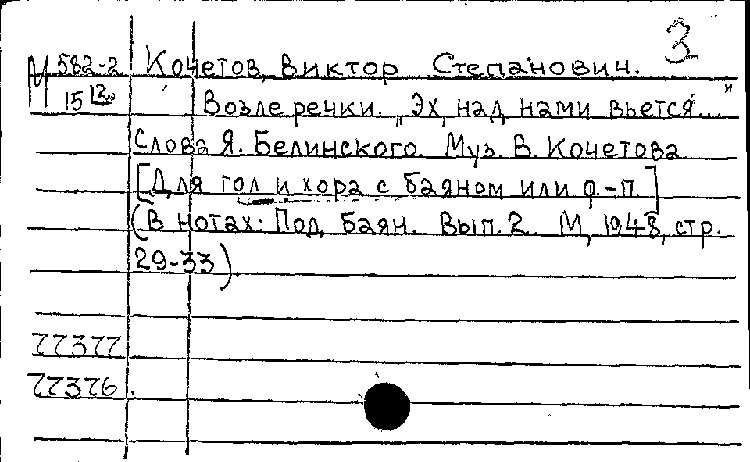 3
М 582-2 Кочетов, Виктор Степанович.
15 Возле речки. „Эх, над нами вьется..."
Слова Я. Белинского. Муз. В. Кочетова
[Для гол и хора с баяном или ф.-п.]
(В нотах: Под баян. Вып. 2. М, 1948, стр.
29-33).
77377
77376.